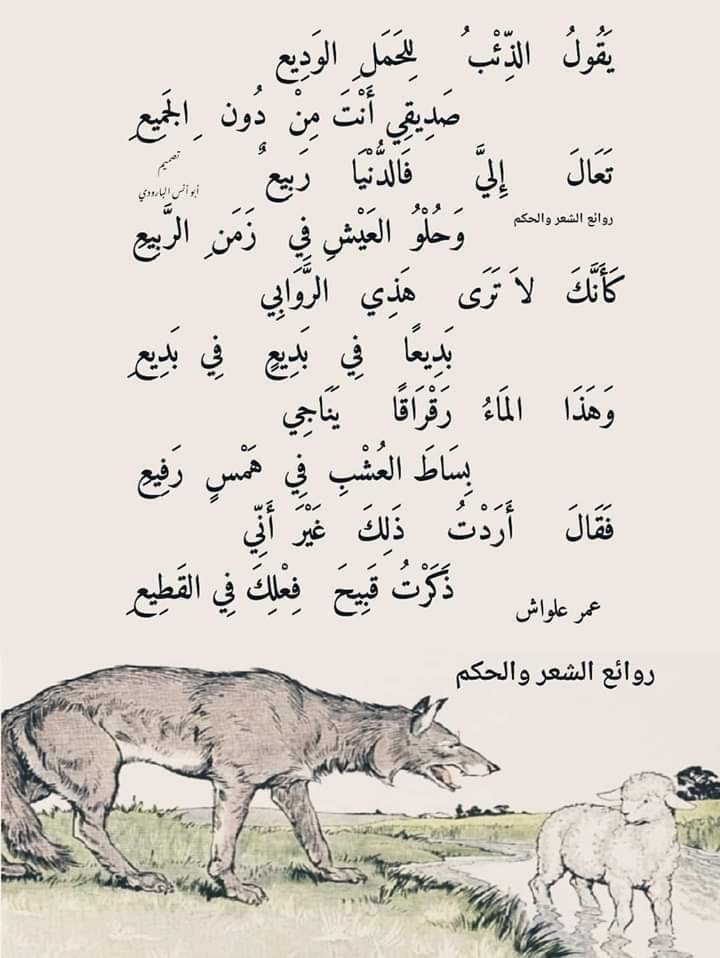 يَقُولُ الذِّئْبُ لِلحَمَلِ الوَدِيع
صَدِيقِي أَنْتَ مِنْ دُونِ الجَمِيعِ
تَعَالَ إِليَّ فَالدُّنْيَا رَبِيعٌ
تصميم
أبو أنس البارودي
روائع الشعر والحكم
وَحُلْوُ العَيْشِ فِي زَمَنِ الرَّبِيعِ
كَأَنَّكَ لاَ تَرَى هَذِي الرَّوَابِي
بَدِيعًا فِي بَدِيعٍ فِي بَدِيعِ
وَهَذَا المَاءُ رَقْرَاقًا يَنَاجِي
بِسَاطَ العُشْبِ فِي هَمْسٍ رَفِيعِ
فَقَالَ أَرَدْتُ ذَلِكَ غَيْرَ أَنِّي
ذَكَرْتُ قَبِيحَ فِعْلِكَ فِي القَطِيعِ
عمر علواش
روائع الشعر والحكم